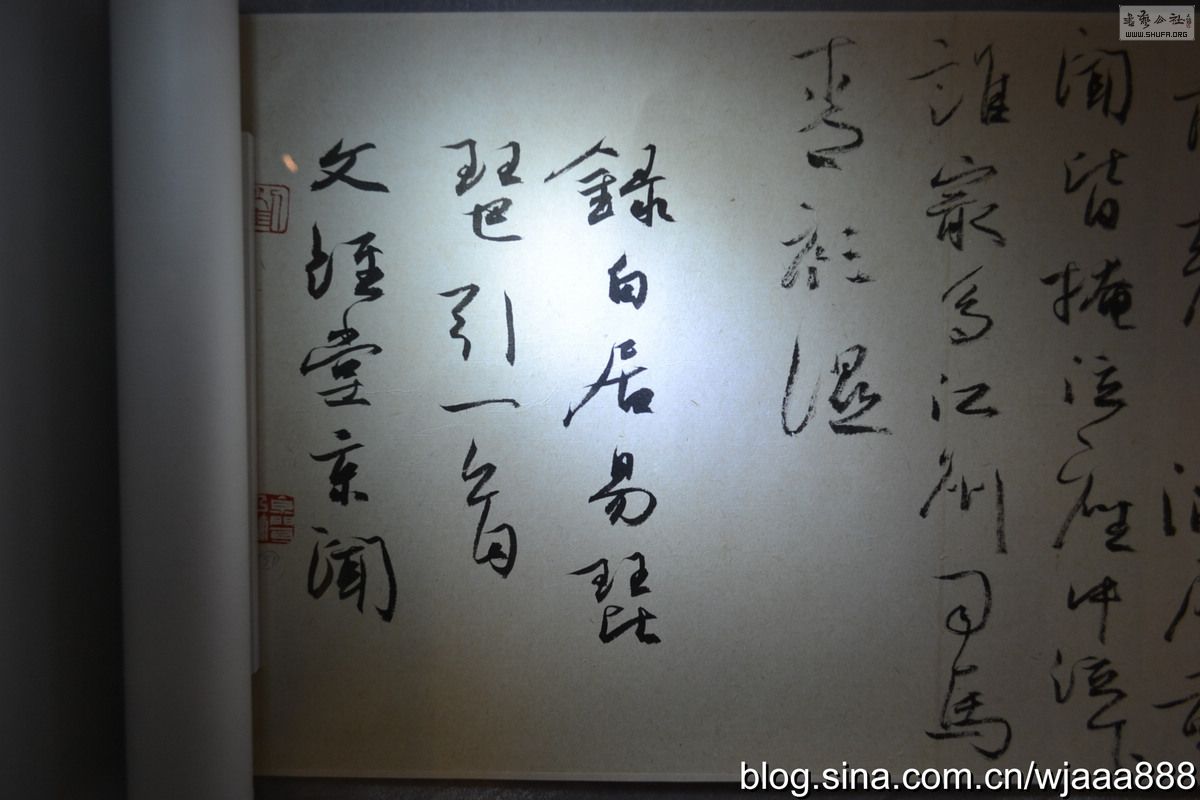 聞皆掩泣座中泣下
誰最多江州司馬
青衫濕
錄白居易琵
琶引一首
文堂京聞
書藝公社
WWW.SHUFA.ORG
blog.sina.com.cn/wjaaa888